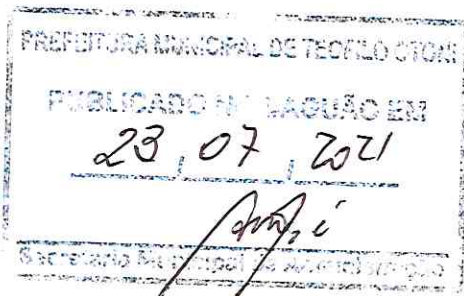 PREFEITURA MUNICIPAL DE TEOFILO OTONI
PUBLICADO NO SAGUÃO EM
23, 07, 2021
Secretario Municipal de